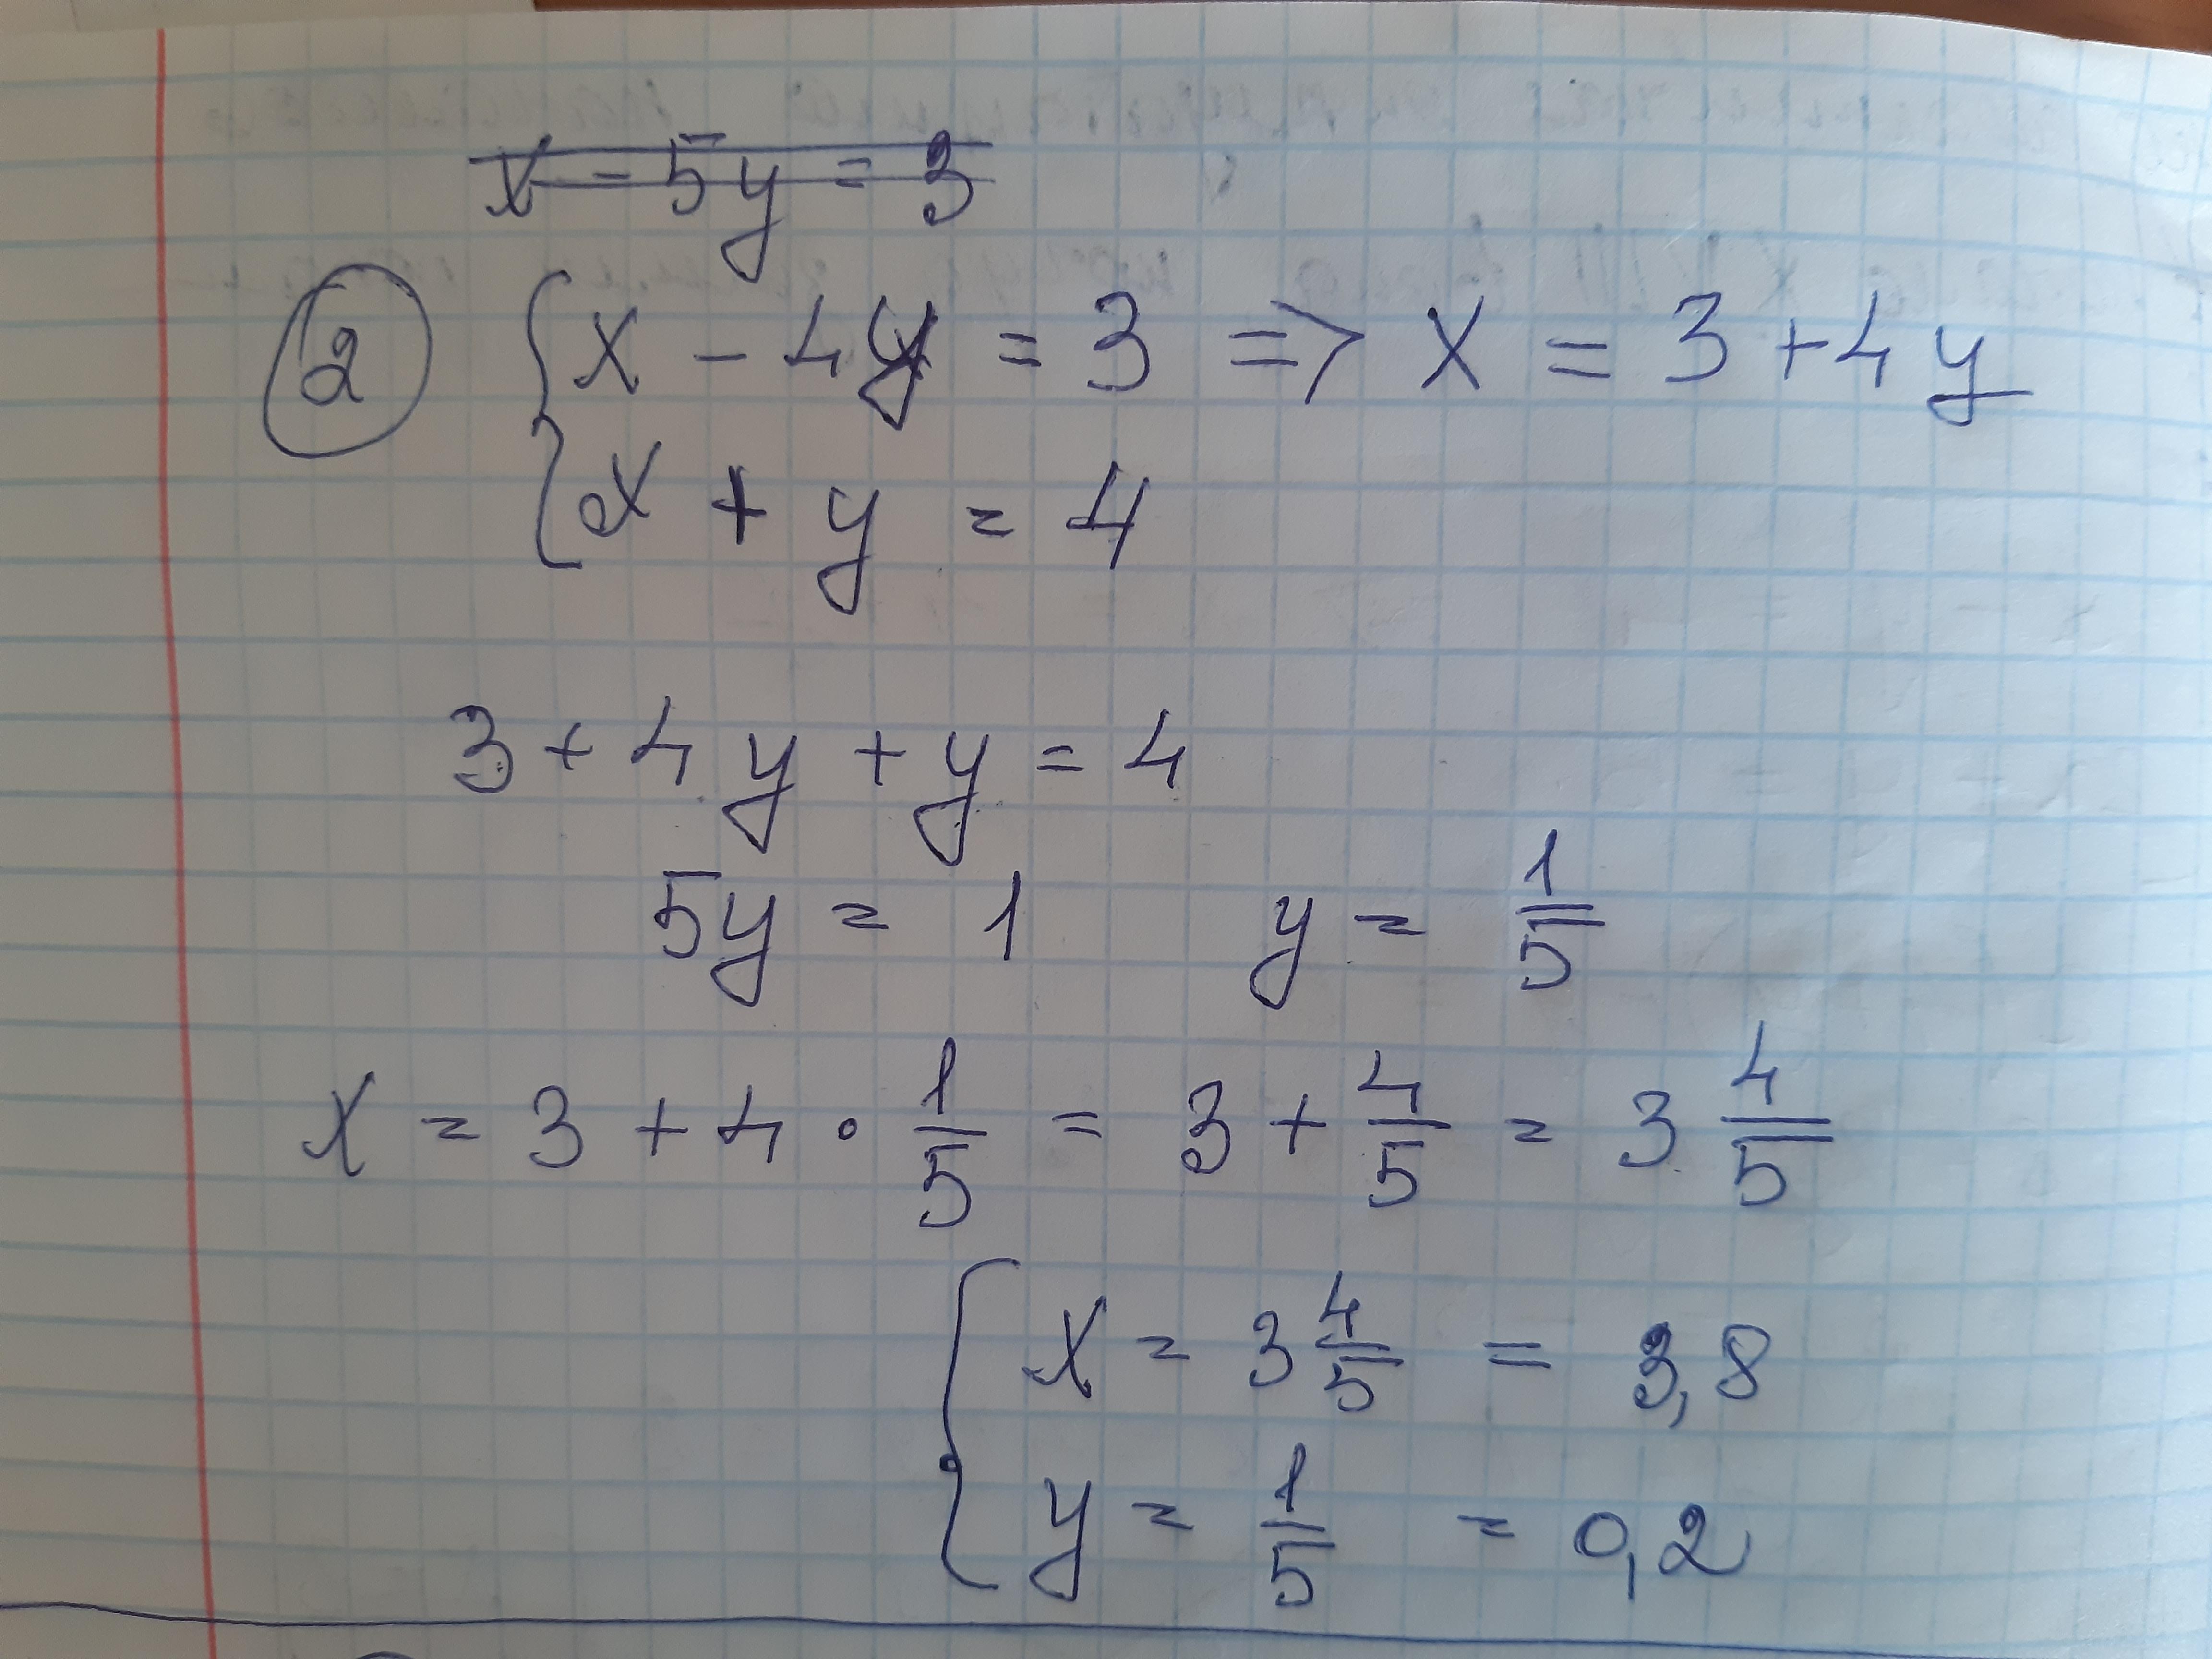 x - 5y = 3
2 { x - 4y = 3 => x = 3 + 4y
x + y = 4
3 + 4y + y = 4
5y = 1 y = 1/5
x = 3 + 4 · 1/5 = 3 + 4/5 = 3 4/5
{ x = 3 4/5 = 3,8
y = 1/5 = 0,2